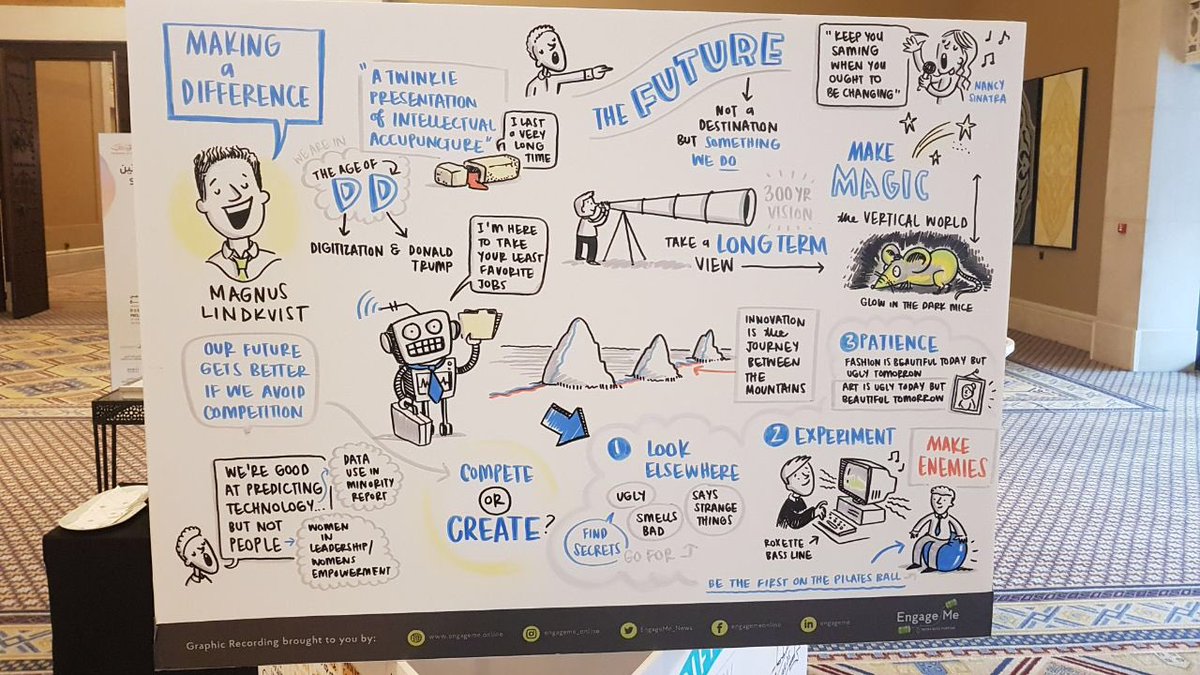 MAKING
a
DIFFERENCE
MAGNUS
LINDKVIST
"A TWINKIE
PRESENTATION
of INTELLECTUAL
ACCUPUNCTURE"
I LAST
a VERY
LONG
TIME
WE ARE IN
THE AGE OF
D D
DIGITIZATION & DONALD
TRUMP
I'M HERE
TO TAKE
YOUR LEAST
FAVORITE
JOBS
THE FUTURE
NOT A
DESTINATION
BUT SOMETHING
WE DO
300 YR
VISION
TAKE a LONG TERM
VIEW
"KEEP YOU
SAMING
WHEN YOU
OUGHT TO
BE CHANGING"
NANCY
SINATRA
MAKE
MAGIC
the VERTICAL WORLD
GLOW IN THE DARK MICE
OUR FUTURE
GETS BETTER
IF WE AVOID
COMPETITION
INNOVATION
IS the
JOURNEY
BETWEEN
THE
MOUNTAINS
WE'RE GOOD
AT PREDICTING
TECHNOLOGY...
BUT NOT
PEOPLE
DATA
USE IN
MINORITY
REPORT
WOMEN
IN
LEADERSHIP/
WOMENS
EMPOWERMENT
COMPETE
OR
CREATE?
1 LOOK
ELSEWHERE
UGLY
SMELLS
BAD
SAYS
STRANGE
THINGS
FIND
SECRETS
GO FOR
2 EXPERIMENT
ROXETTE
BASS LINE
MAKE
ENEMIES
BE THE FIRST ON THE PILATES BALL
3 PATIENCE
FASHION IS BEAUTIFUL TODAY BUT
UGLY TOMORROW
ART IS UGLY TODAY BUT
BEAUTIFUL TOMORROW
Graphic Recording brought to you by:
www.engageme.online
engageme_online
EngageMe_News
engagemeonline
engageme
Engage Me